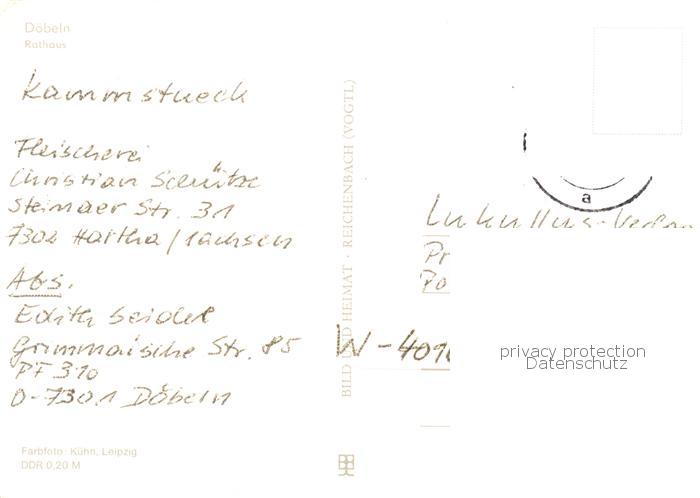 Döbeln
Rathaus
Kammstueck
Fleischerei
Christian Schütze
Steinaer Str. 31
7302 Hartha / Sachsen
Abs.
Edith Seidel
Grimmaische Str. 85
PF 310
O-7301 Döbeln
Farbfoto: Kühn, Leipzig
DDR 0,20 M
BILD UND HEIMAT · REICHENBACH (VOGTL)
a
Lukullus-Verlag
Pr
Po
W-4010
privacy protection
Datenschutz